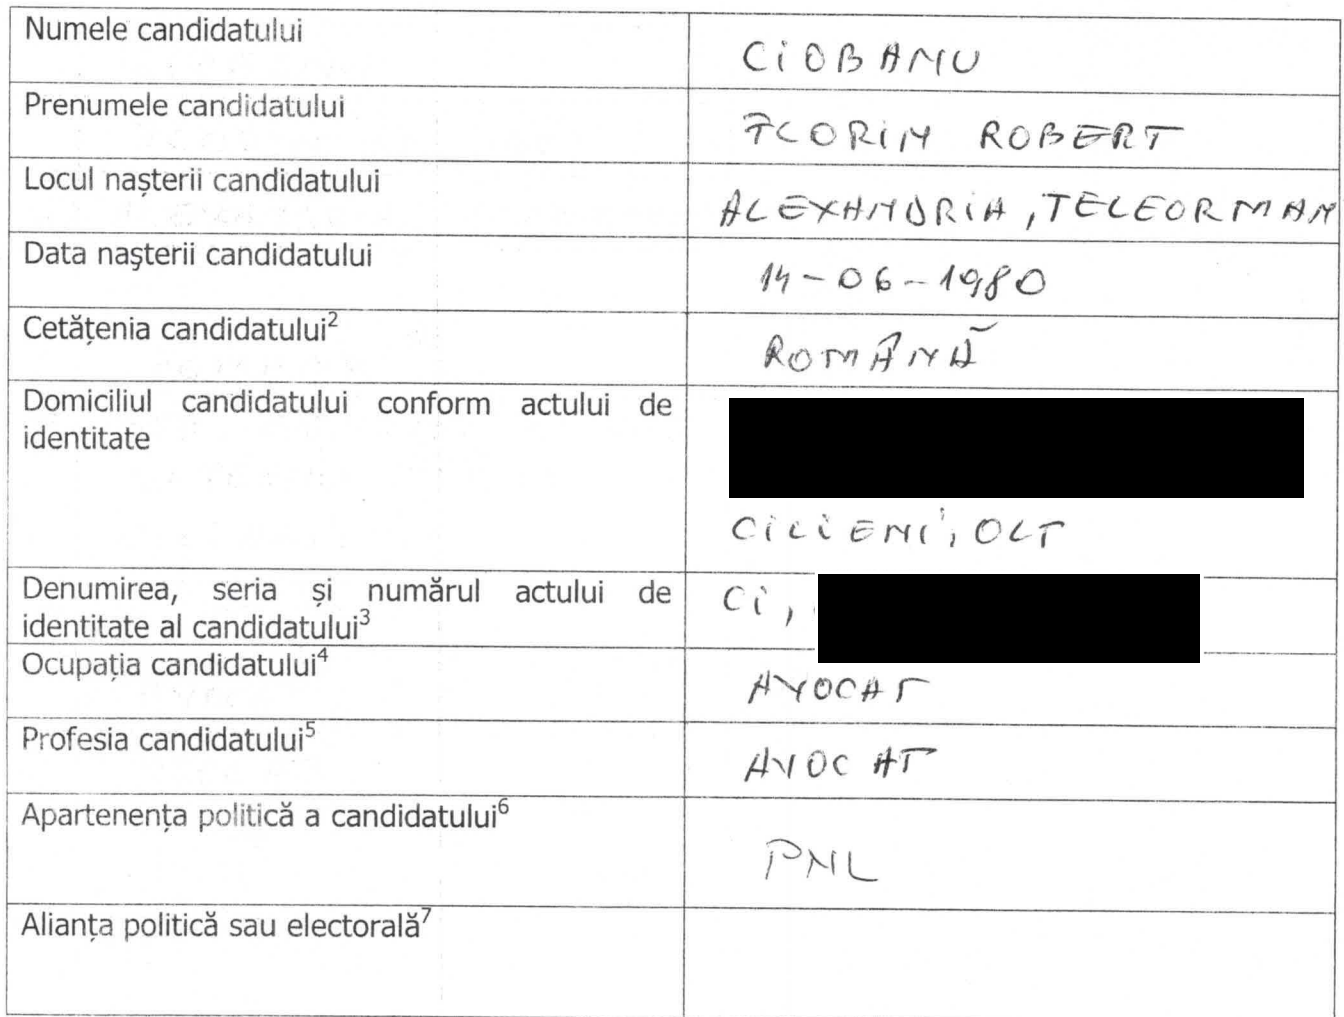 Numele candidatului
CIOBANU
Prenumele candidatului
FLORIN ROBERT
Locul nașterii candidatului
ALEXANDRIA, TELEORMAN
Data naşterii candidatului
14-06-1980
Cetățenia candidatului²
ROMÂNĂ
Domiciliul candidatului conform actului de
identitate
CILIENI, OLT
Denumirea, seria și numărul actului de
identitate al candidatului³
CI,
Ocupația candidatului⁴
AVOCAT
Profesia candidatului⁵
AVOCAT
Apartenența politică a candidatului⁶
PNL
Alianța politică sau electorală⁷